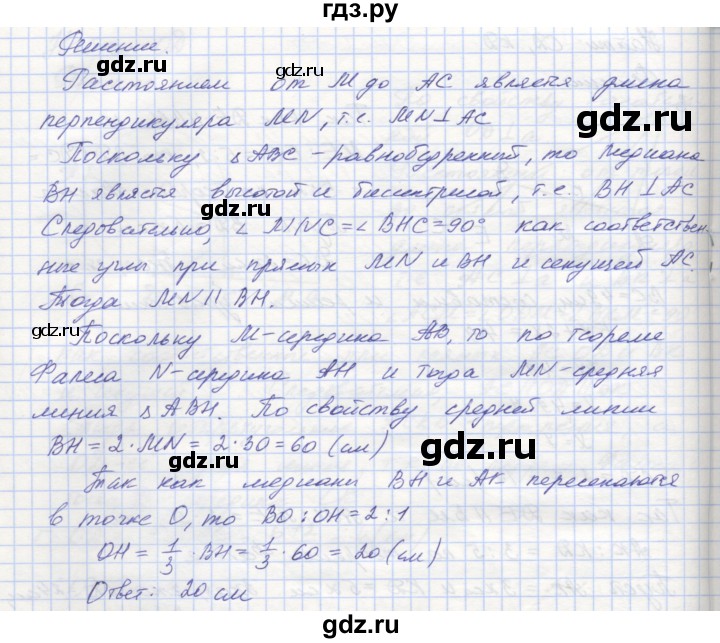 гдз.ру
Решение.
gdz.ru
Расстоянием от M до AC является длина
gdz.ru
перпендикуляра MN, т.е. MN⊥AC
gdz.ru
Поскольку △ABC - равнобедренный, то медиана
BH является высотой и биссектрисой, т.е. BH⊥AC
gdz.ru
Следовательно, ∠MNC=∠BHC=90° как соответствен-
ные углы при прямых MN и BH и секущей AC.
gdz.ru
Тогда MN∥BH.
gdz.ru
gdz.ru
Поскольку M-середина AB, то по теореме
Фалеса N-середина AH и тогда MN-средняя
линия △ABH. По свойству средней линии
gdz.ru
BH = 2·MN = 2·30 = 60 (см)
gdz.ru
Так как медианы BH и AK пересекаются
gdz.ru
в точке O, то BO:OH=2:1
OH = 1/3 · BH = 1/3 · 60 = 20 (см)
gdz.ru
Ответ: 20 см
gdz.ru